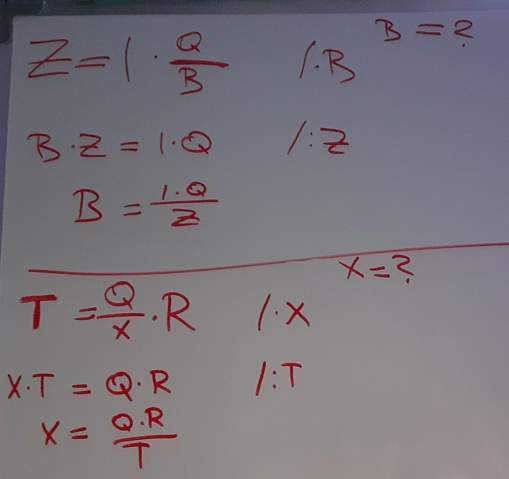 Z = 1 · Q/B /·B B = ?
B·Z = 1·Q /:Z
B = 1·Q/Z
X = ?
T = Q/X · R /·X
X·T = Q·R /:T
X = Q·R/T